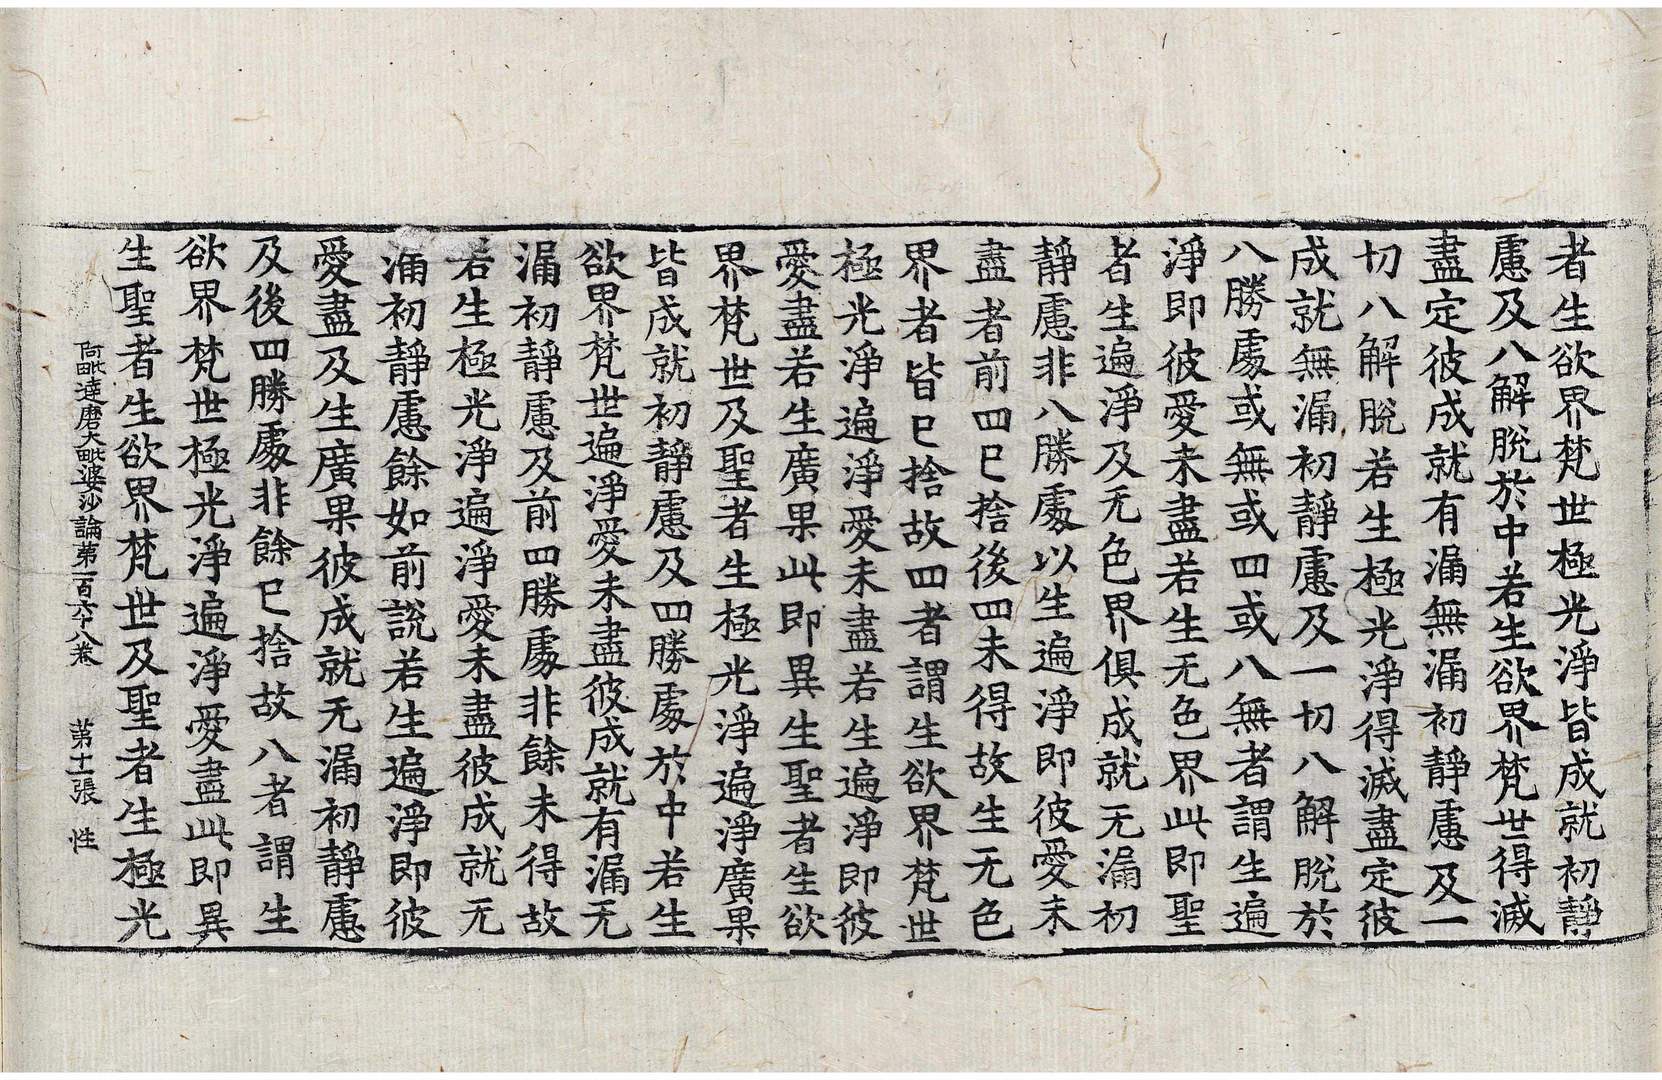 者生欲界梵世極光淨皆成就初靜
慮及八解脫於中若生欲界梵世得滅
盡定彼成就有漏無漏初靜慮及一
切八解脫若生極光淨得滅盡定彼
成就無漏初靜慮及一切八解脫於
八勝處或無或四或八無者謂生遍
淨即彼愛未盡若生无色界此即聖
者生遍淨及无色界俱成就无漏初
靜慮非八勝處以生遍淨即彼愛未
盡者前四已捨後四未得故生无色
界者皆已捨故四者謂生欲界梵世
極光淨遍淨愛未盡若生遍淨即彼
愛盡若生廣果此即異生聖者生欲
界梵世及聖者生極光淨遍淨廣果
皆成就初靜慮及四勝處於中若生
欲界梵世遍淨愛未盡彼成就有漏无
漏初靜慮及前四勝處非餘未得故
若生極光淨遍淨愛未盡彼成就无
漏初靜慮餘如前說若生遍淨即彼
愛盡及生廣果彼成就无漏初靜慮
及後四勝處非餘已捨故八者謂生
欲界梵世極光淨遍淨愛盡此即異
生聖者生欲界梵世及聖者生極光
阿毗達磨大毗婆沙論第一百六十八卷 第十一張 性